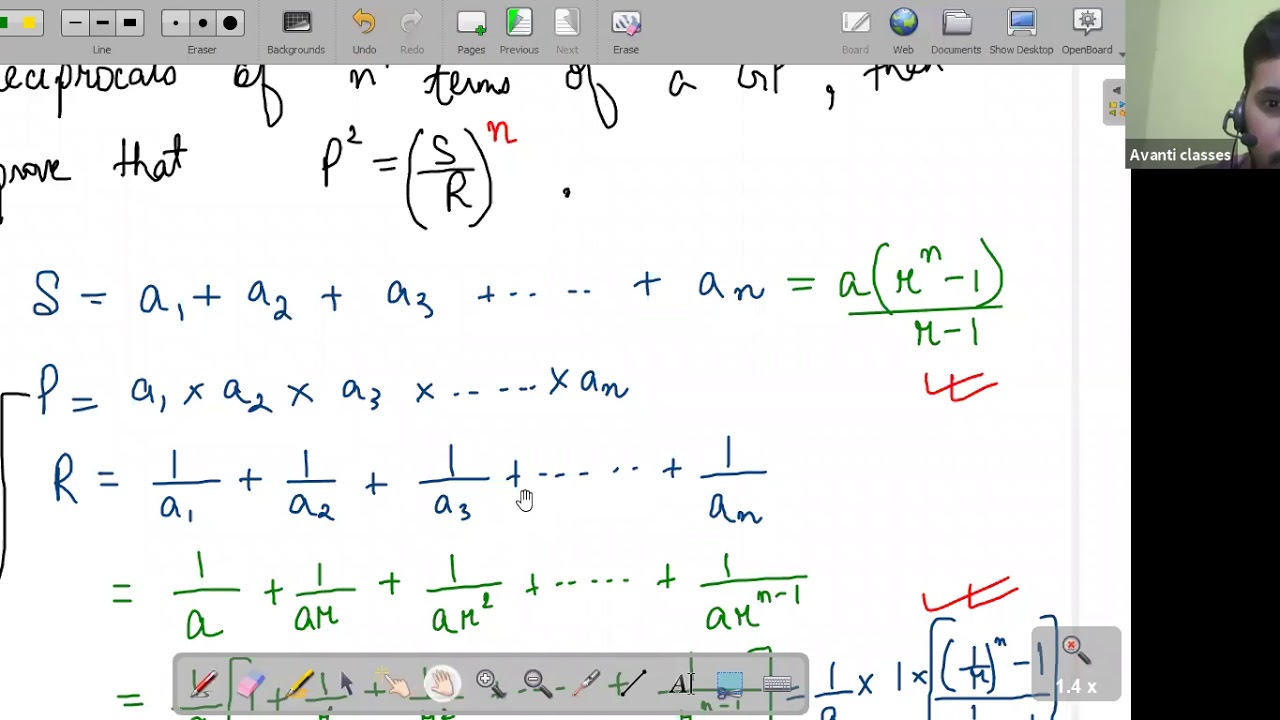 Line Eraser Backgrounds Undo Redo Pages Previous Next Erase Board Web Documents Show Desktop OpenBoard
reciprocals of n terms of a GP, then
prove that P² = (S/R)ⁿ .
Avanti classes
S = a₁ + a₂ + a₃ + ..... + aₙ = a(rⁿ-1)/(r-1)
P = a₁ × a₂ × a₃ × ...... × aₙ
R = 1/a₁ + 1/a₂ + 1/a₃ + ...... + 1/aₙ
= 1/a + 1/ar + 1/ar² + ...... + 1/arⁿ⁻¹
1.4 x